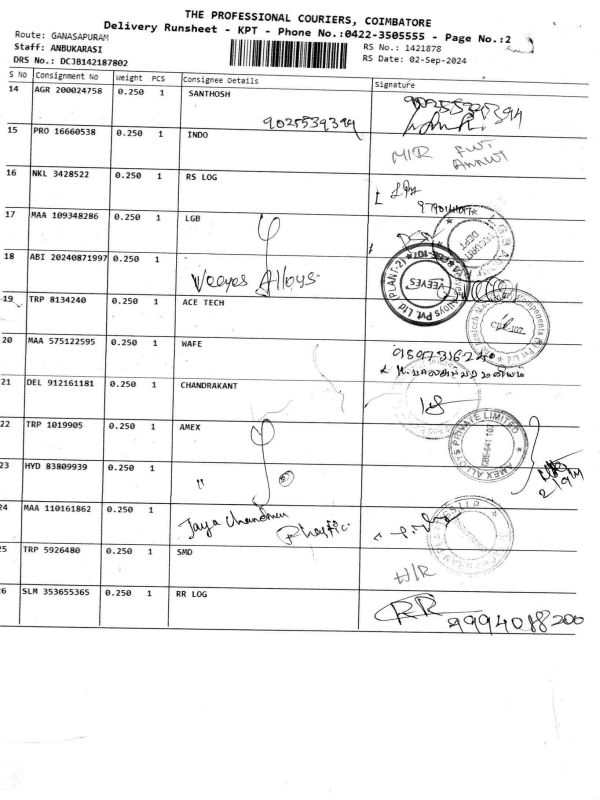 THE PROFESSIONAL COURIERS, COIMBATORE
Delivery Runsheet - KPT - Phone No.:0422-3505555 - Page No.:2
Route: GANASAPURAM
Staff: ANBUKARASI
DRS No.: DCJB142187802
RS No.: 1421878
RS Date: 02-Sep-2024
S No Consignment No Weight PCS Consignee Details Signature
14 AGR 200024758 0.250 1 SANTHOSH
9025539394
15 PRO 16660538 0.250 1 INDO
16 NKL 3428522 0.250 1 RS LOG
17 MAA 109348286 0.250 1 LGB
18 ABI 20240871997 0.250 1
Veeyes Alloys.
VEEYES
19 TRP 8134240 0.250 1 ACE TECH
20 MAA 575122595 0.250 1 WAFE
21 DEL 912161181 0.250 1 CHANDRAKANT
22 TRP 1019905 0.250 1 AMEX
AMEX ALLOYS PRIVATE LIMITED
23 HYD 83809939 0.250 1 "
24 MAA 110161862 0.250 1
Jaya Chandran
25 TRP 5926480 0.250 1 SMD
H/R
26 SLM 353655365 0.250 1 RR LOG
RR
9994088200